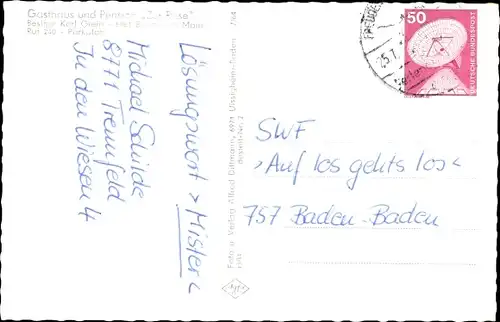 Gasthaus und Pension "Zur Rose"
Besitzer Karl
Ruf 240 - Parkplatz
Lösungswort > Mister <
Michael Schide
8771 Trennfeld
In den Wiesen 4
Foto u. Verlag Alfred Dittmann, 6971 Uissigheim-Baden
764
25.7.
50
DEUTSCHE BUNDESPOST
SWF
>Auf los gehts los<
757 Baden-Baden